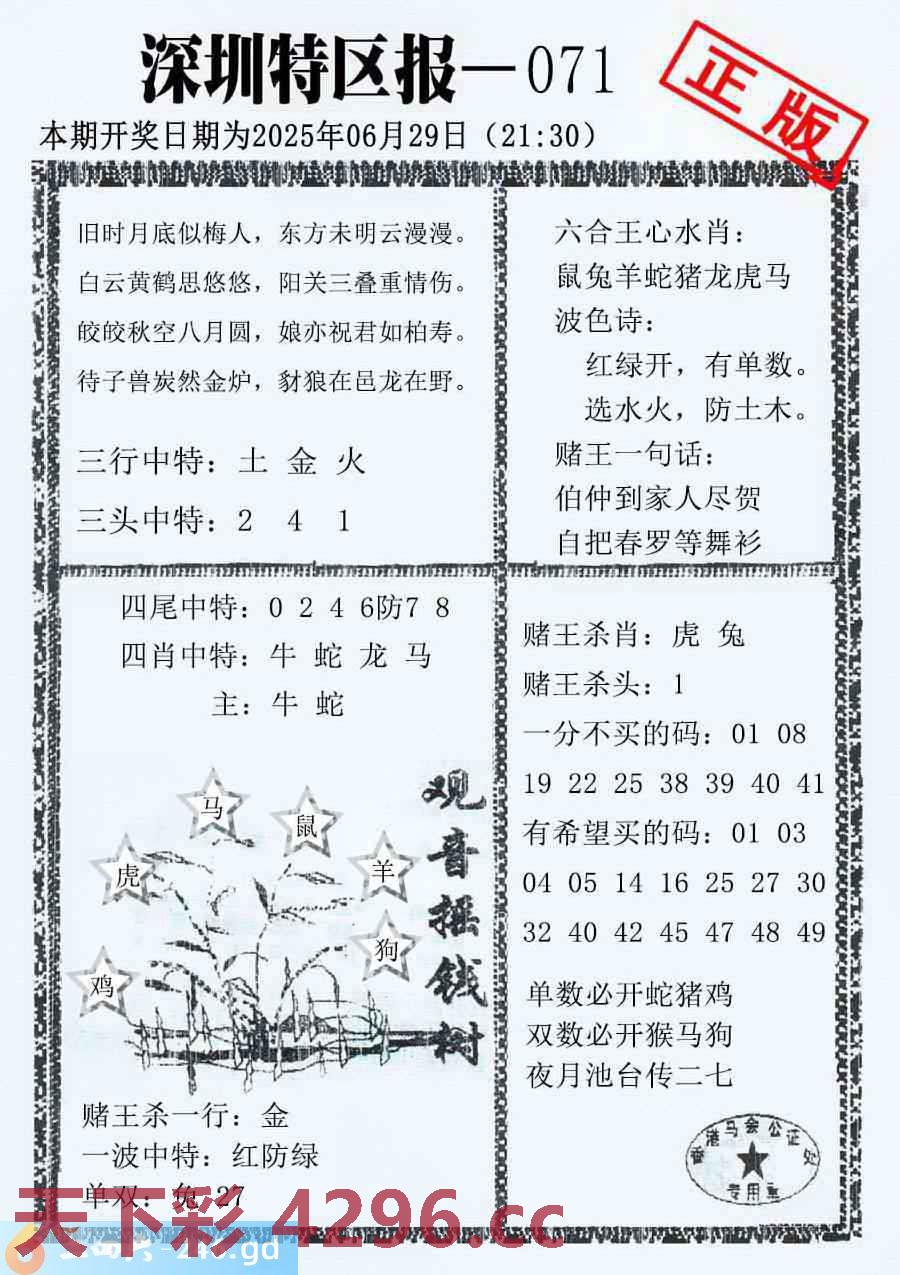 深圳特区报—071
正版
本期开奖日期为2025年06月29日（21:30）
旧时月底似梅人，东方未明云漫漫。
白云黄鹤思悠悠，阳关三叠重情伤。
皎皎秋空八月圆，娘亦祝君如柏寿。
待子兽炭然金炉，豺狼在邑龙在野。
三行中特：土 金 火
三头中特：2 4 1
六合王心水肖：
鼠兔羊蛇猪龙虎马
波色诗：
红绿开，有单数。
选水火，防土木。
赌王一句话：
伯仲到家人尽贺
自把春罗等舞衫
四尾中特：0 2 4 6防7 8
四肖中特：牛 蛇 龙 马
主：牛 蛇
马
鼠
虎
羊
狗
鸡
观音摇钱树
赌王杀一行：金
一波中特：红防绿
单双：兔 27
赌王杀肖：虎 兔
赌王杀头：1
一分不买的码：01 08
19 22 25 38 39 40 41
有希望买的码：01 03
04 05 14 16 25 27 30
32 40 42 45 47 48 49
单数必开蛇猪鸡
双数必开猴马狗
夜月池台传二七
香港马会公证处
专用章
天下彩 4296.cc
246.gd